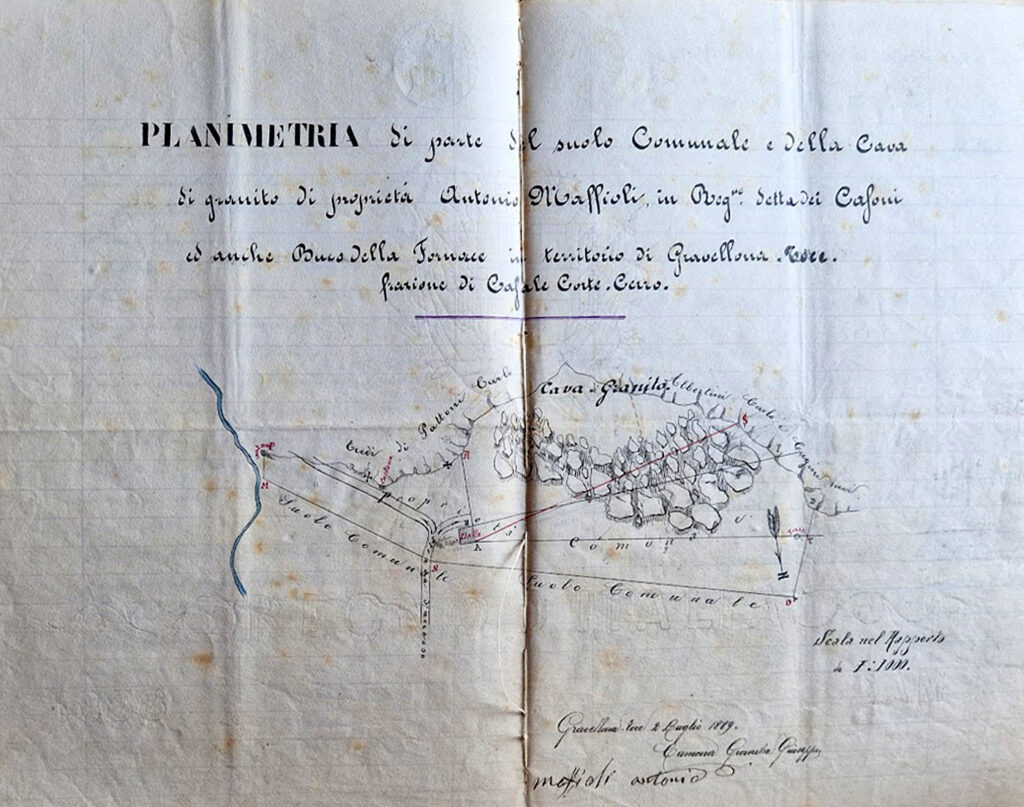 PLANIMETRIA di parte del suolo Comunale e della Cava
di granito di proprietà Antonio Maffioli, in Reg.ne detta dei Casoni
ed anche Buco della Fornace in territorio di Gravellona Toce.
frazione di Casale Corte-Cerro.
Cava di Granito
Albertini Carlo e
Eredi di Pattoni Carlo
S
P
M
Suolo Comunale
Stalla
A
N
Comuna
Strada
Suolo Comunale
O
N
Scala nel Rapporto
da 1:1000.
Gravellona Toce 2 Luglio 1889.
Giuseppe
Maffioli Antonio